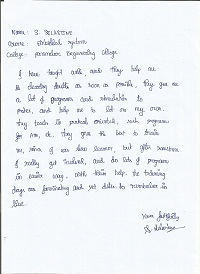 Name : S. SELASTINE
Course : embedded system
College : Parameshwari Engineering College
I have taught well, and they help me
to clearing doubts as soon as possible, they give me
a lot of programs and simulation to
practice, and help me to on my own.
they teach the practical oriented, such programs
for me, etc. They give the best to train
me, since I was slow learner, but after sometime
I really got involved, and do lots of programs
in easier way. with their help. the training
days are fascinating and yet date to remember in
life.
Yours faithfully